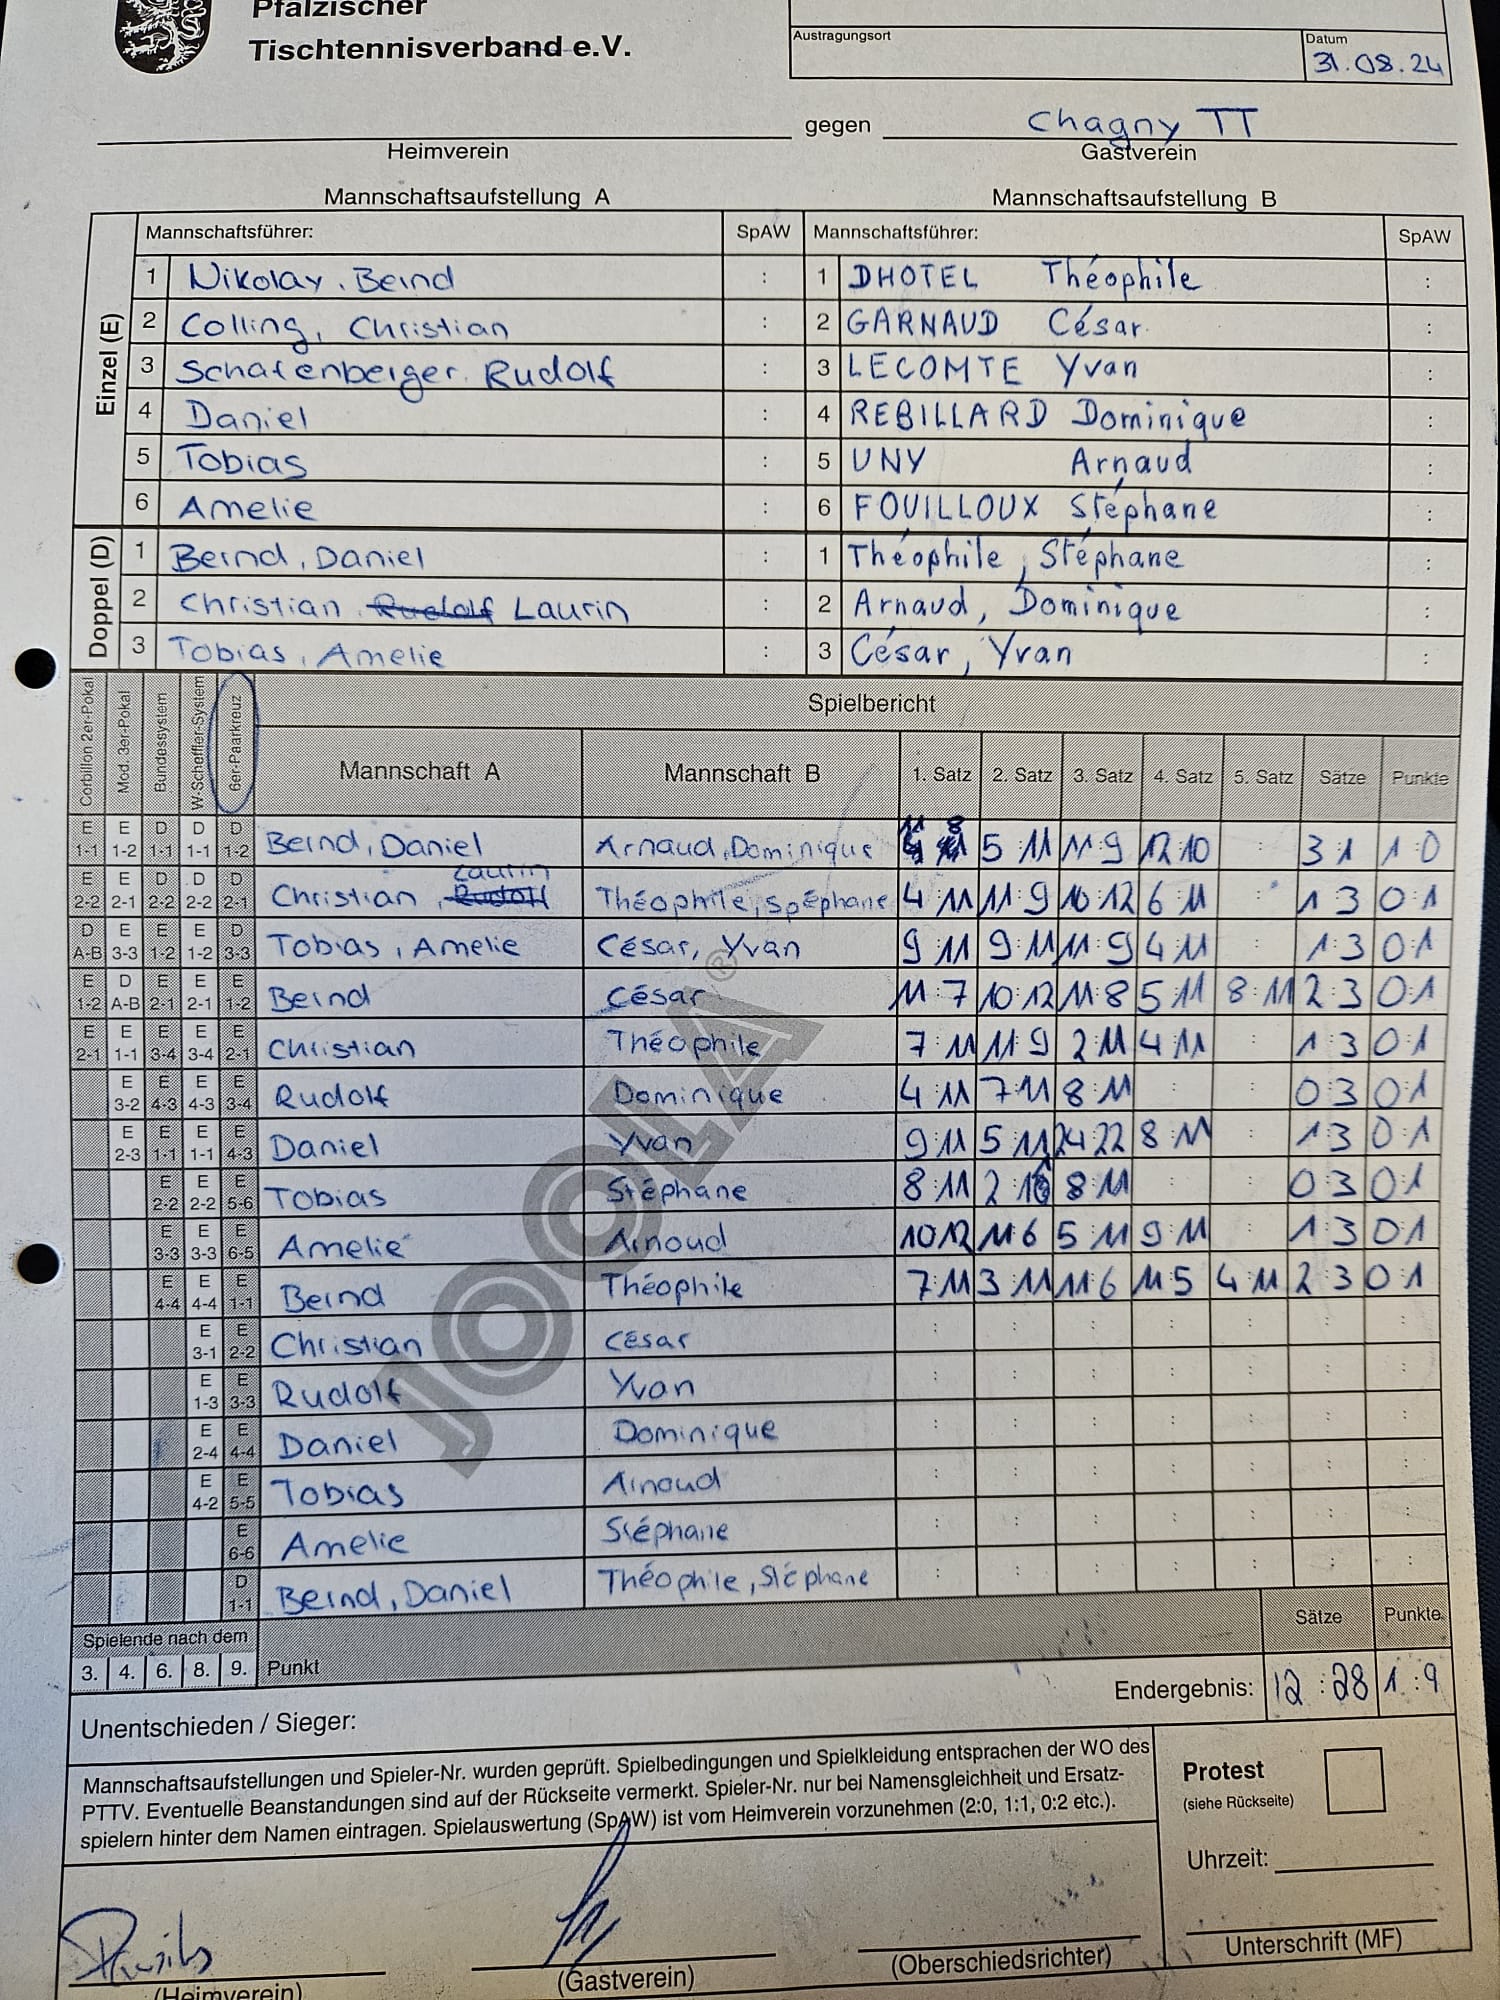 Pfälzischer
Tischtennisverband e.V.
Austragungsort
Datum
31.08.24
gegen
Chagny TT
Heimverein
Gastverein
Mannschaftsaufstellung A
Mannschaftsaufstellung B
Einzel (E)
Mannschaftsführer: SpAW Mannschaftsführer: SpAW
1 Nikolay, Bernd : 1 DHOTEL Théophile :
2 Colling, Christian : 2 GARNAUD César :
3 Schafenberger, Rudolf : 3 LECOMTE Yvan :
4 Daniel : 4 REBILLARD Dominique :
5 Tobias : 5 UNY Arnaud :
6 Amelie : 6 FOUILLOUX Stéphane :
Doppel (D)
1 Bernd, Daniel : 1 Théophile, Stéphane :
2 Christian, Rudolf Laurin : 2 Arnaud, Dominique :
3 Tobias, Amelie : 3 César, Yvan :
Corbillon 2er-Pokal
Mod. 3er-Pokal
Bundessystem
W-Scheffler-System
6er-Paarkreuz
Spielbericht
Mannschaft A Mannschaft B 1. Satz 2. Satz 3. Satz 4. Satz 5. Satz Sätze Punkte
E E D D D
1-1 1-2 1-1 1-1 1-2 Bernd, Daniel Arnaud, Dominique 11 8 5 11 11:9 12 10 : 3 1 1:0
Laurin
E E D D D
2-2 2-1 2-2 2-2 2-1 Christian, Rudolf Théophile, Spéphane 4 11 11:9 10:12 6 11 : 1 3 0:1
D E E E D
A-B 3-3 1-2 1-2 3-3 Tobias, Amelie César, Yvan 9:11 9:11 11:9 4 11 : 1:3 0:1
E D E E E
1-2 A-B 2-1 2-1 1-2 Bernd César 11:7 10:12 11:8 5 11 8:11 2:3 0:1
E E E E E
2-1 1-1 3-4 3-4 2-1 Christian Théophile 7:11 11 9 2 11 4 11 : 1 3 0:1
E E E E
3-2 4-3 4-3 3-4 Rudolf Dominique 4 11 7 11 8:11 : : 0 3 0:1
E E E E
2-3 1-1 1-1 4-3 Daniel Yvan 9:11 5 11 24 22 8 11 : 1 3 0:1
E E E
2-2 2-2 5-6 Tobias Stéphane 8:11 2 8:11 : : 0:3 0:1
E E E
3-3 3-3 6-5 Amelie Arnoud 10 12 11 6 5 11 9 11 : 1:3 0:1
E E E
4-4 4-4 1-1 Bernd Théophile 7:11 3:11 11 6 11 5 4 11 2 3 0 1
E E
3-1 2-2 Christian César : : : : : : :
E E
1-3 3-3 Rudolf Yvan : : : : : : :
E E
2-4 4-4 Daniel Dominique : : : : : : :
E E
4-2 5-5 Tobias Arnoud : : : : : : :
E
6-6 Amelie Stéphane : : : : : : :
D
1-1 Bernd, Daniel Théophile, Stéphane : : : : : : :
Spielende nach dem Sätze Punkte
3. 4. 6. 8. 9. Punkt
Endergebnis: 12:28 1:9
Unentschieden / Sieger:
Mannschaftsaufstellungen und Spieler-Nr. wurden geprüft. Spielbedingungen und Spielkleidung entsprachen der WO des
PTTV. Eventuelle Beanstandungen sind auf der Rückseite vermerkt. Spieler-Nr. nur bei Namensgleichheit und Ersatz-
spielern hinter dem Namen eintragen. Spielauswertung (SpAW) ist vom Heimverein vorzunehmen (2:0, 1:1, 0:2 etc.).
Protest
(siehe Rückseite)
Uhrzeit:
(Heimverein)
(Gastverein)
(Oberschiedsrichter)
Unterschrift (MF)
JOOLA®